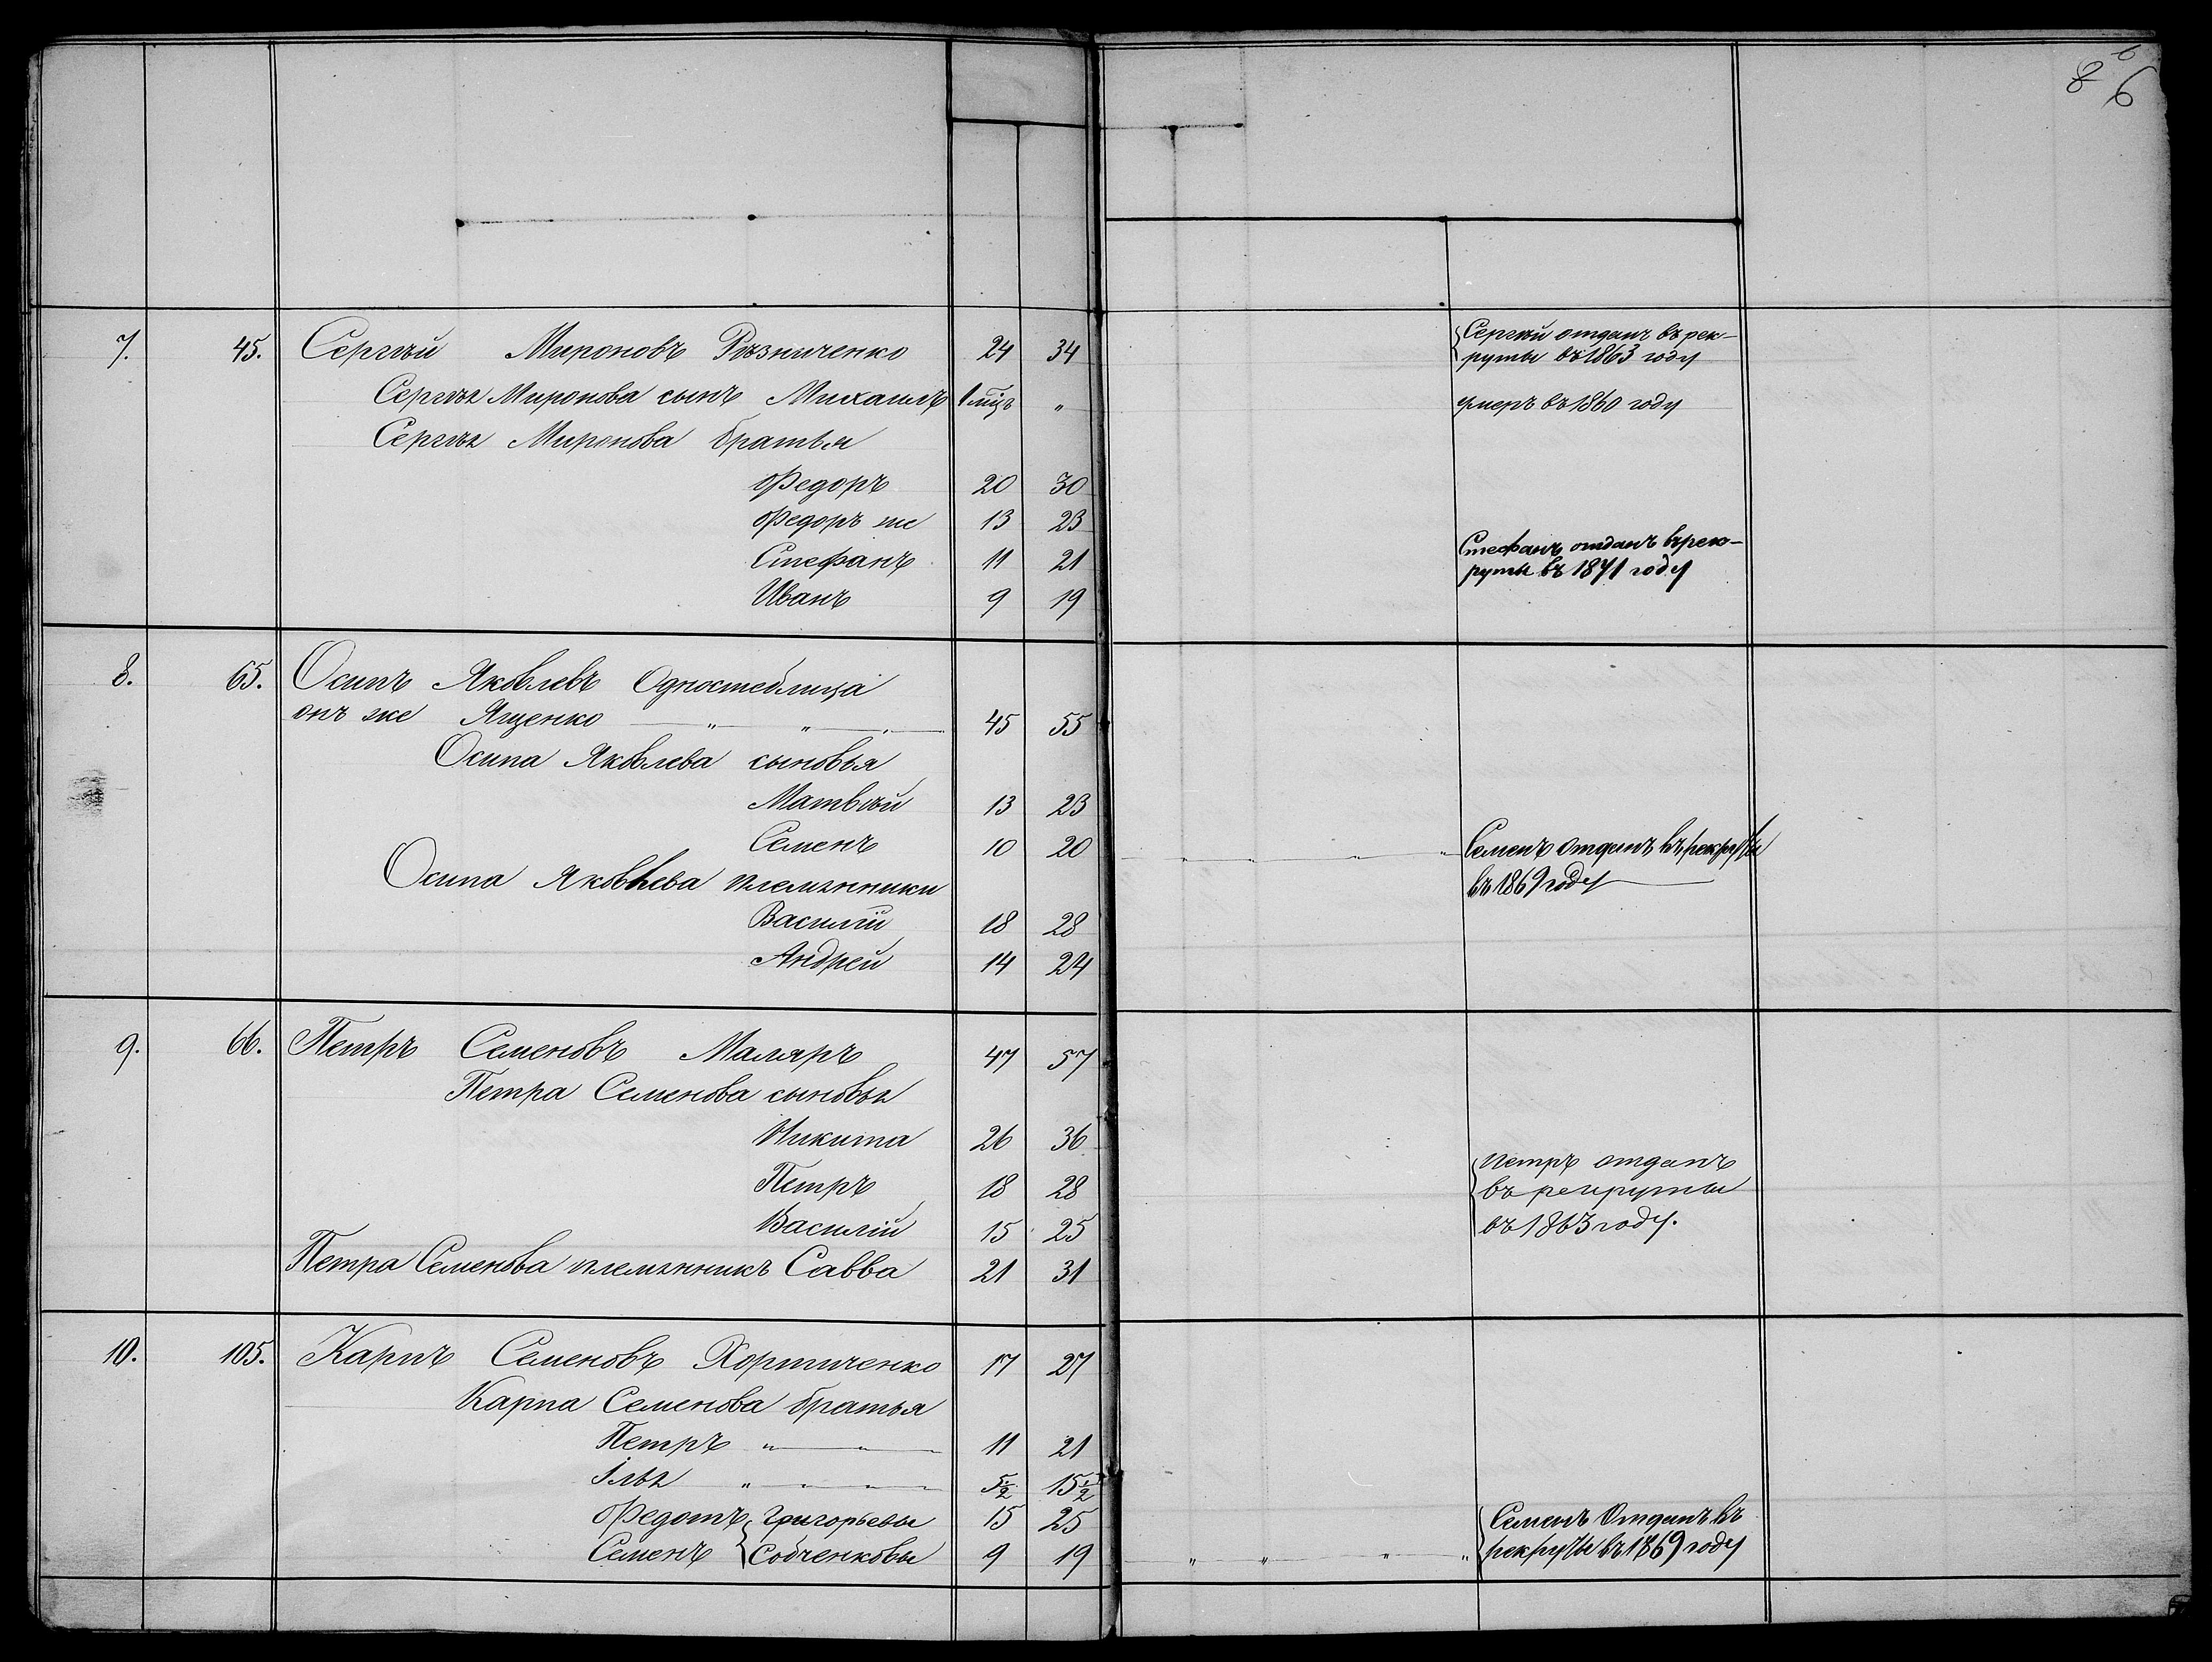 6
8 6
7. 45. Сергѣй Мироновъ Рѣзниченко 24 34 Сергѣй отданъ въ рек-
руты въ 1863 году
Сергѣя Миронова сынъ Михаилъ 1 мцъ " умеръ въ 1860 году
Сергѣя Миронова братья
Федоръ 20 30
Федоръ же 13 23
Стефанъ 11 21 Стефанъ отданъ въ рек-
руты въ 1871 году
Иванъ 9 19
8. 65. Осипъ Яковлевъ Одностеблица
онъ же Яценко " " " 45 55
Осипа Яковлева сыновья
Матвѣй 13 23
Семенъ 10 20 " " " Семенъ отданъ въ рекруты
въ 1869 году
Осипа Яковлева племянники
Василій 18 28
Андрей 14 24
9. 66. Петръ Семеновъ Маляръ 47 57
Петра Семенова сыновья
Никита 26 36
Петръ 18 28 Петръ отданъ
въ рекруты
въ 1863 году.
Василій 15 25
Петра Семенова племянникъ Савва 21 31
10. 105. Карпъ Семеновъ Хортиченко 17 27
Карпа Семенова братья
Петръ " " 11 21
Iлья " " " " 5½ 15½
Федотъ Григорьевы 15 25 Семенъ Отданъ въ
Семенъ Собченковы 9 19 " " " " рекруты въ 1869 году